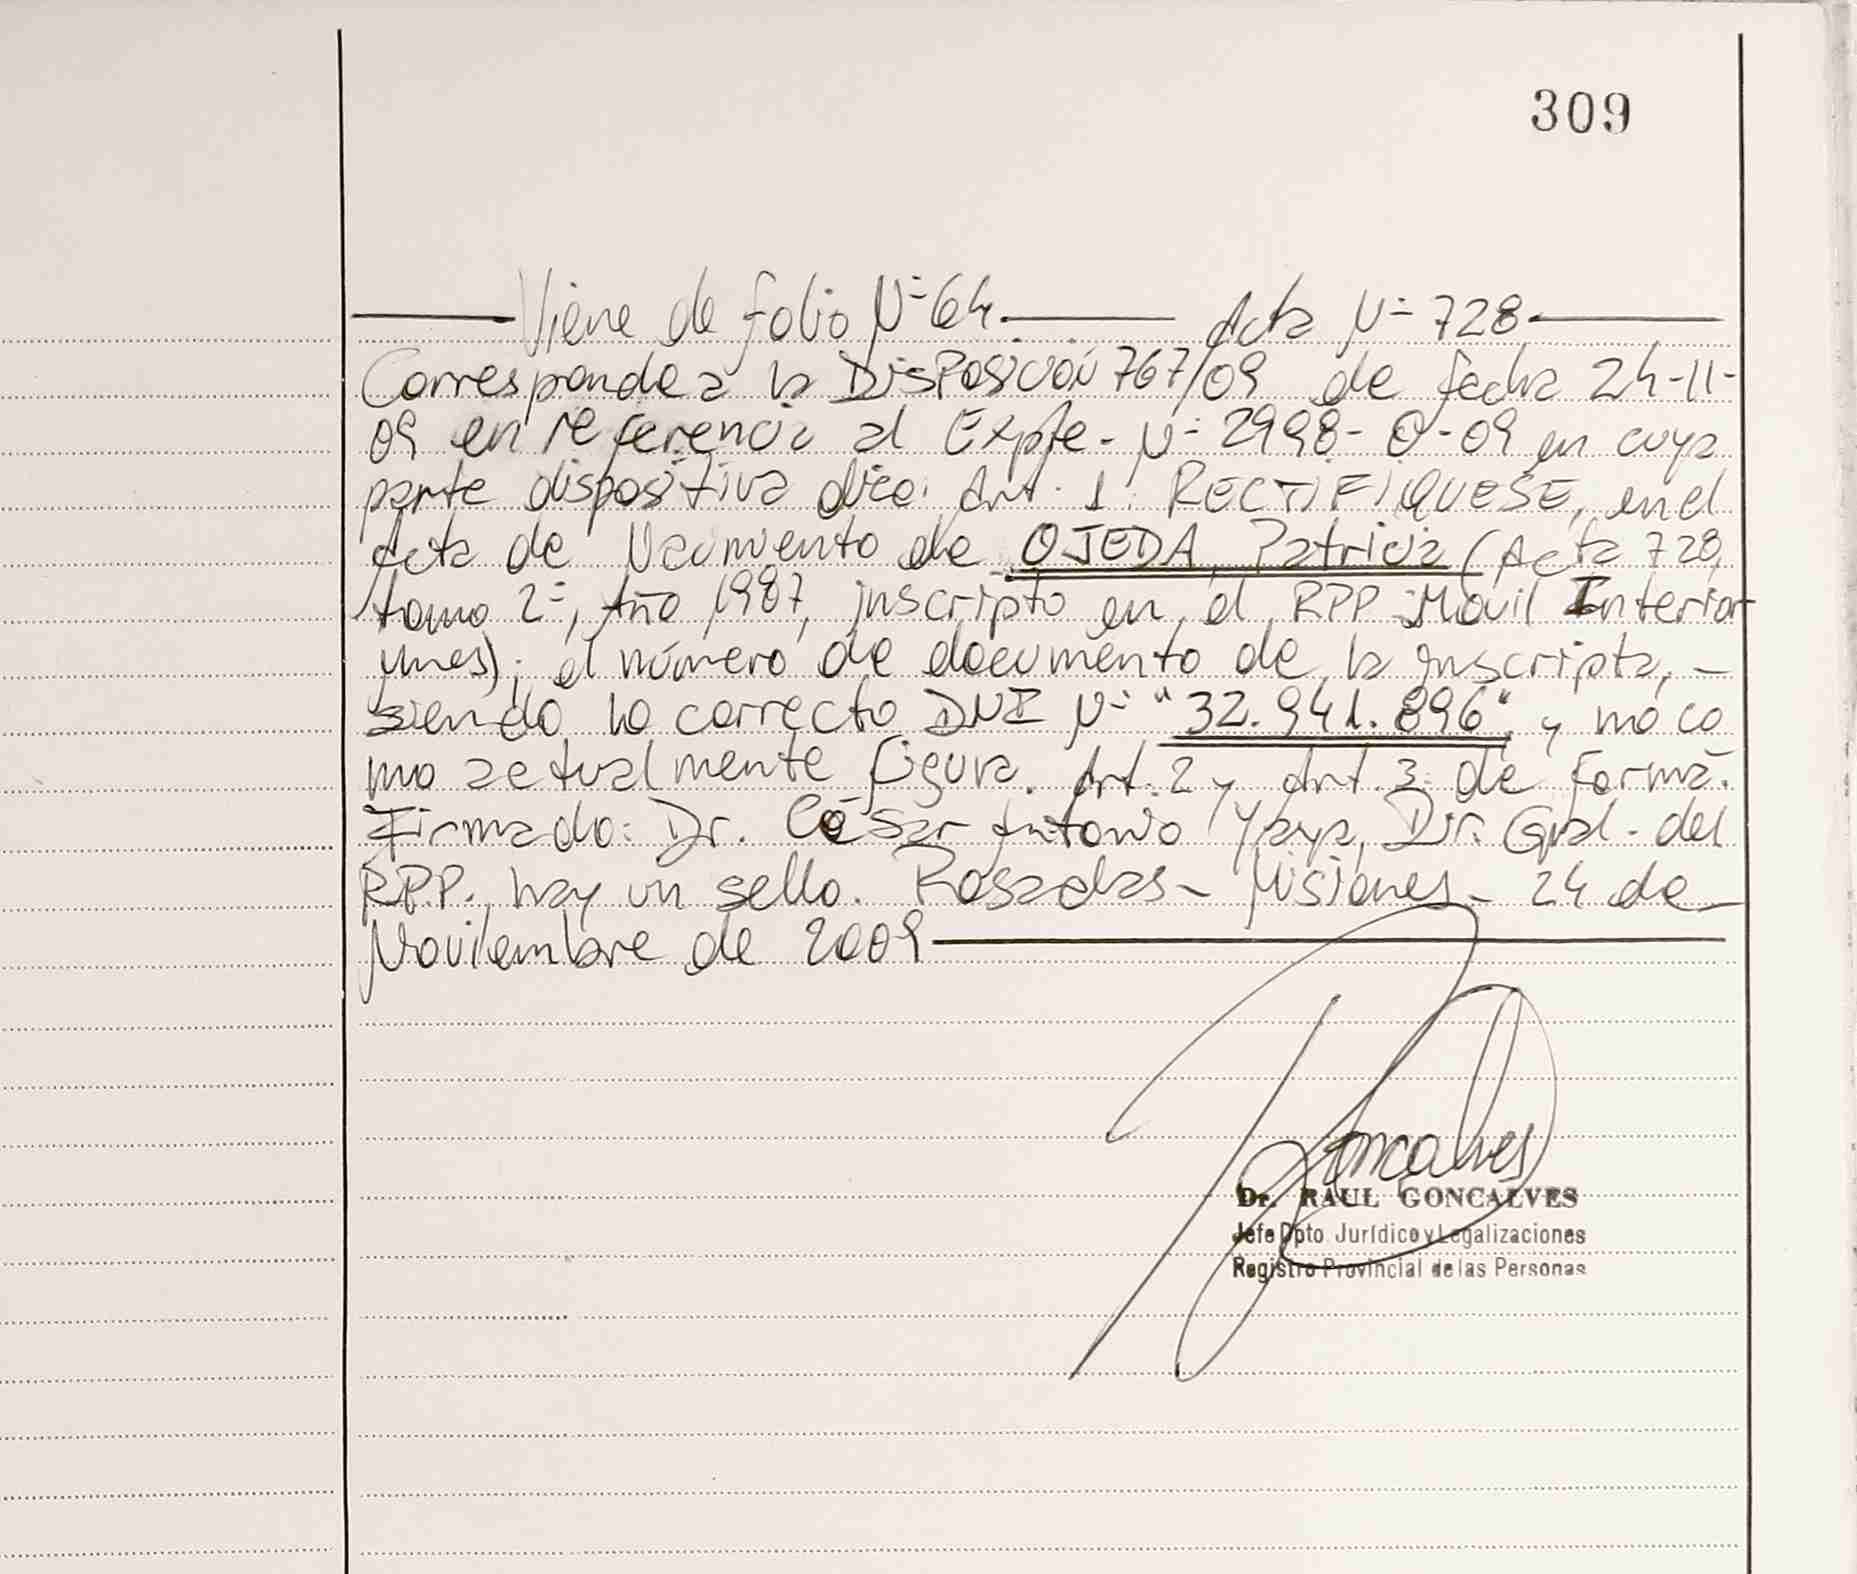 309
Viene de folio Nº 64. Acta Nº 728
Corresponde a la DISPOSICIÓN 767/09 de fecha 24-11-
09 en referencia al Expte. Nº 2998-O-09 en cuya
parte dispositiva dice: Art. 1: RECTIFIQUESE, en el
Acta de Nacimiento de OJEDA, Patricia (Acta 728,
tomo 2º, Año 1987, inscripto en el RPP Móvil Interior
); el número de documento de la inscripta, -
siendo lo correcto DNI Nº "32.941.896", y no co
mo actualmente figura. Art. 2 y Art. 3: de forma.
Firmado: Dr. César Antonio Yaya, Dir. Gral. del
RPP. hay un sello. Posadas - Misiones - 24 de
Noviembre de 2009
Goncalves
Dr. RAUL GONCALVES
Jefe Dpto Jurídico y Legalizaciones
Registro Provincial de las Personas